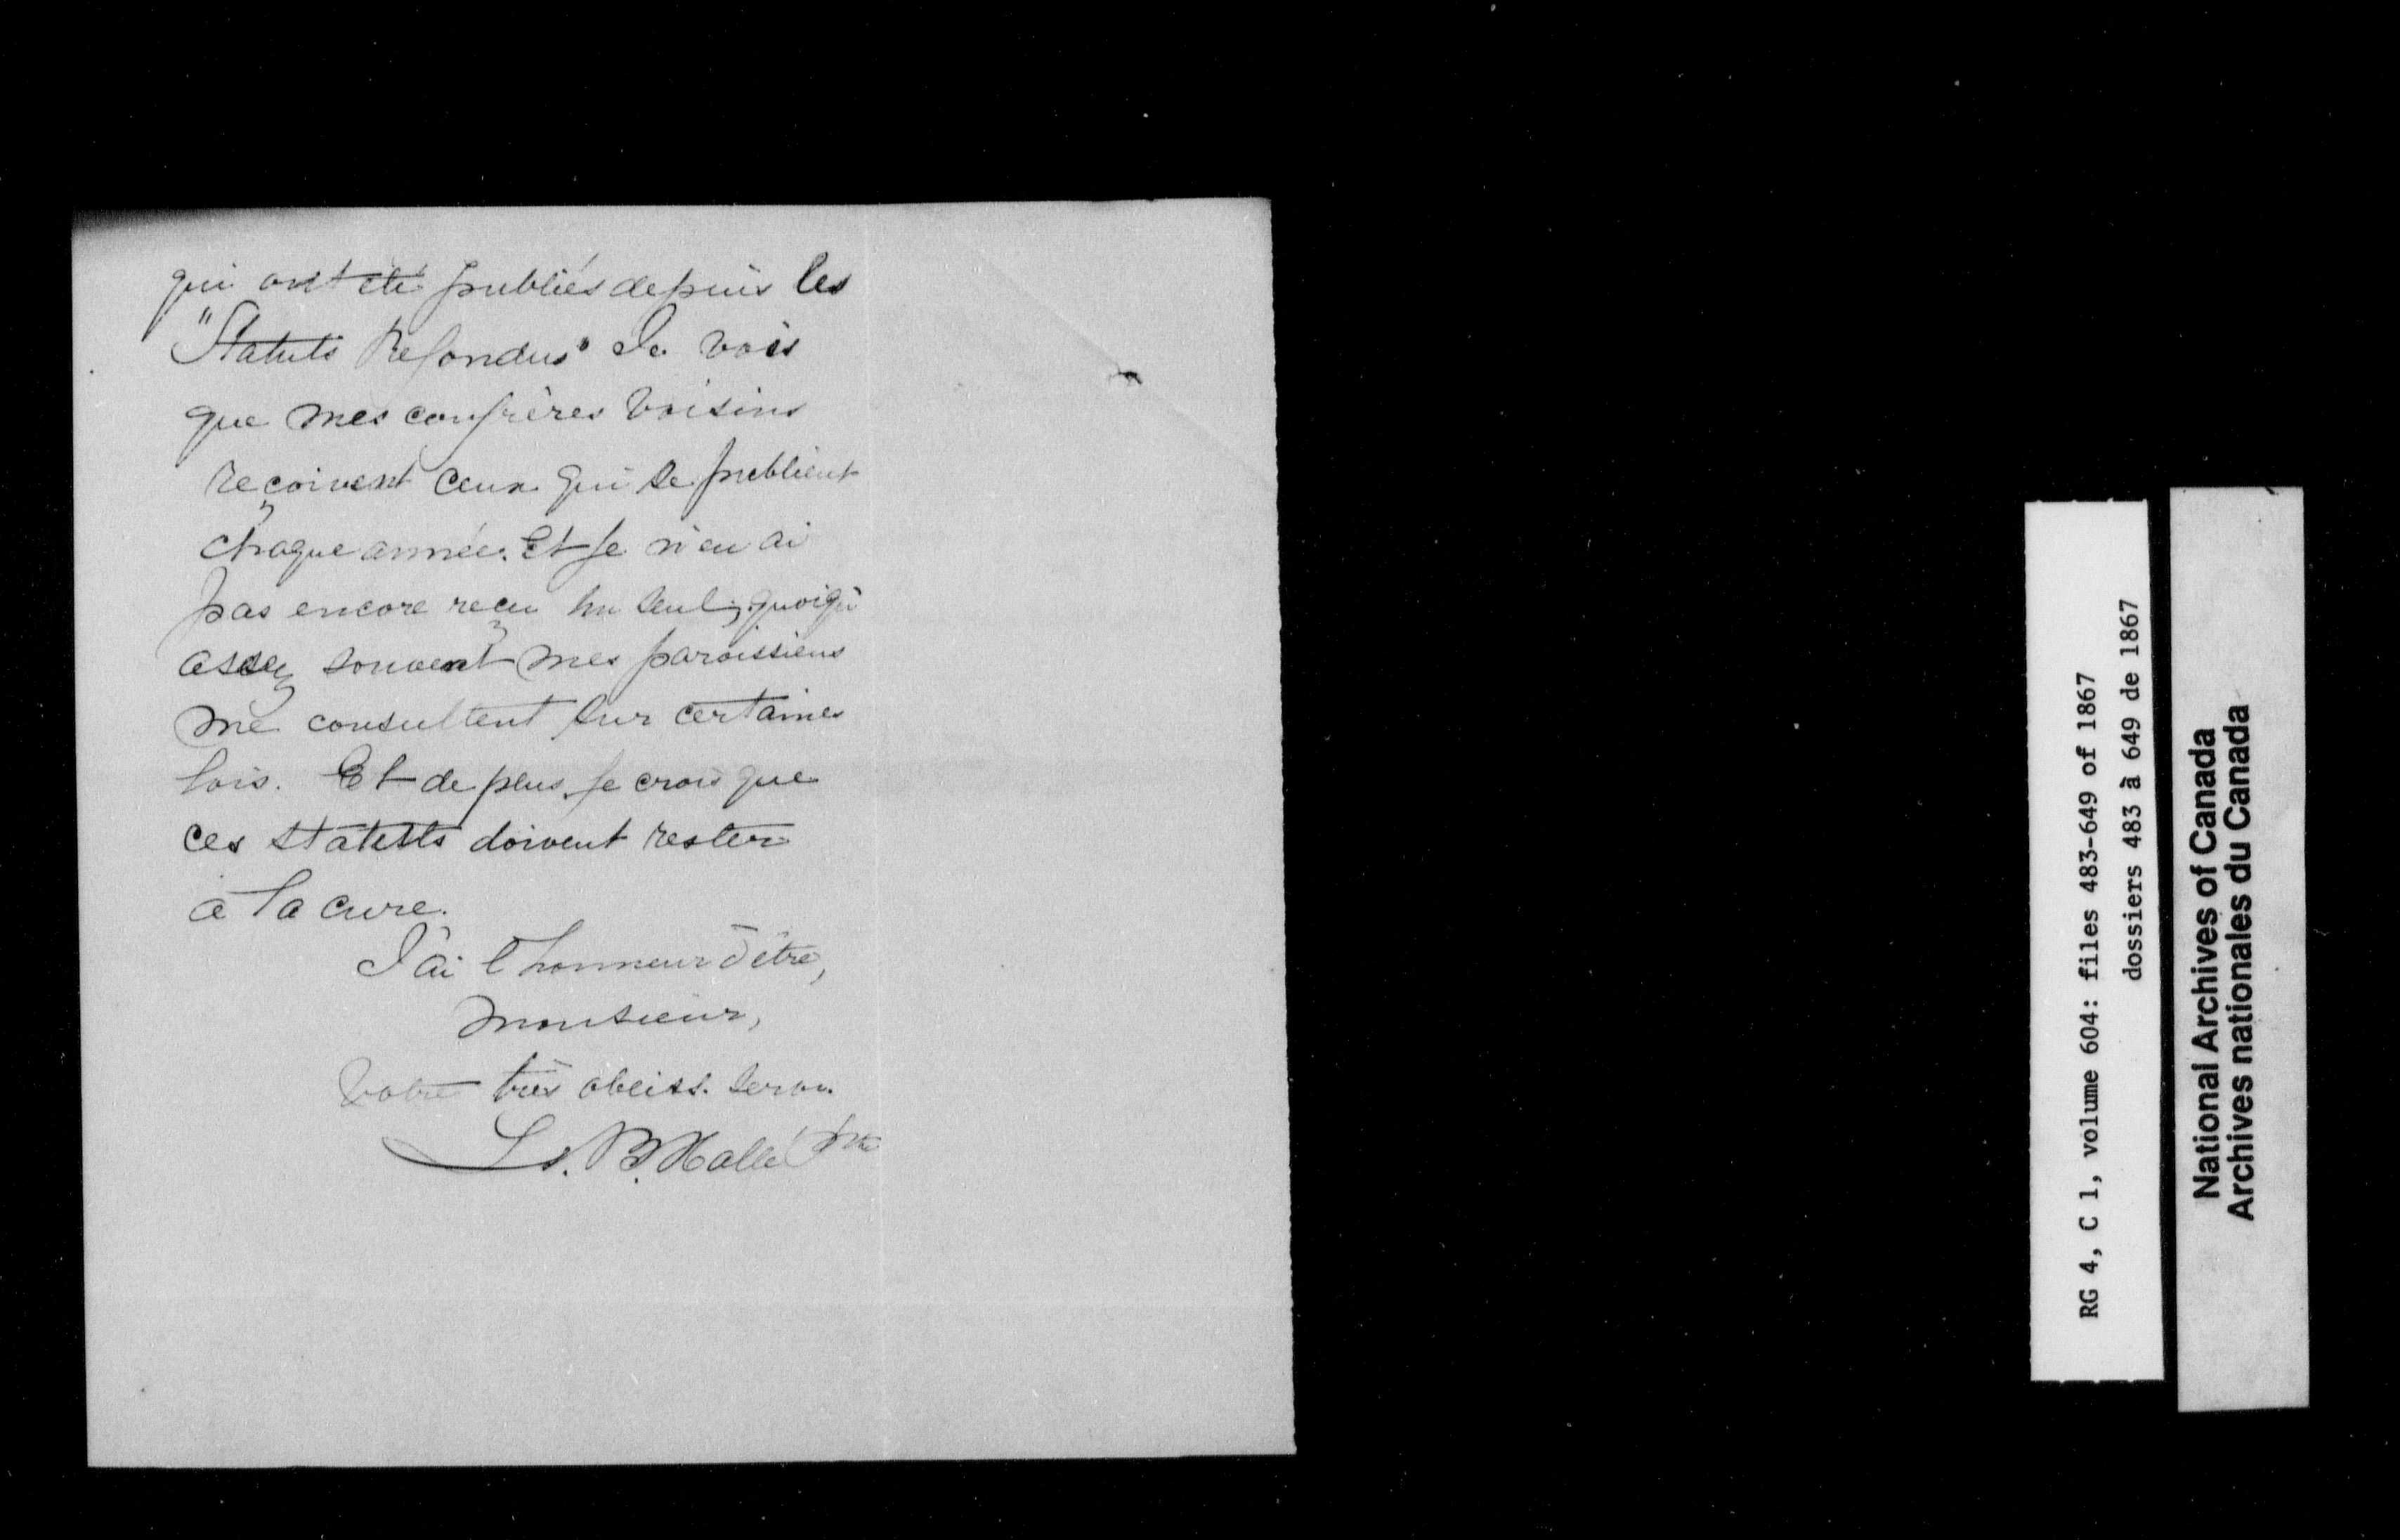 qui ont été publiés depuis les
"Statuts Refondus" Je vois
que mes confrères voisins
reçoivent ceux qui se publient
chaque année. Et je n'en ai
pas encore reçu un seul, quoiqu'
assez souvent mes paroissiens
me consultent sur certaines
lois. Et de plus je crois que
ces statuts doivent rester
à la cure.
J'ai l'honneur d'être,
monsieur,
Votre très obéiss. serv.
Ls. B. Hallé Ptre
RG 4, C 1, volume 604: files 483-649 of 1867
dossiers 483 à 649 de 1867
National Archives of Canada
Archives nationales du Canada